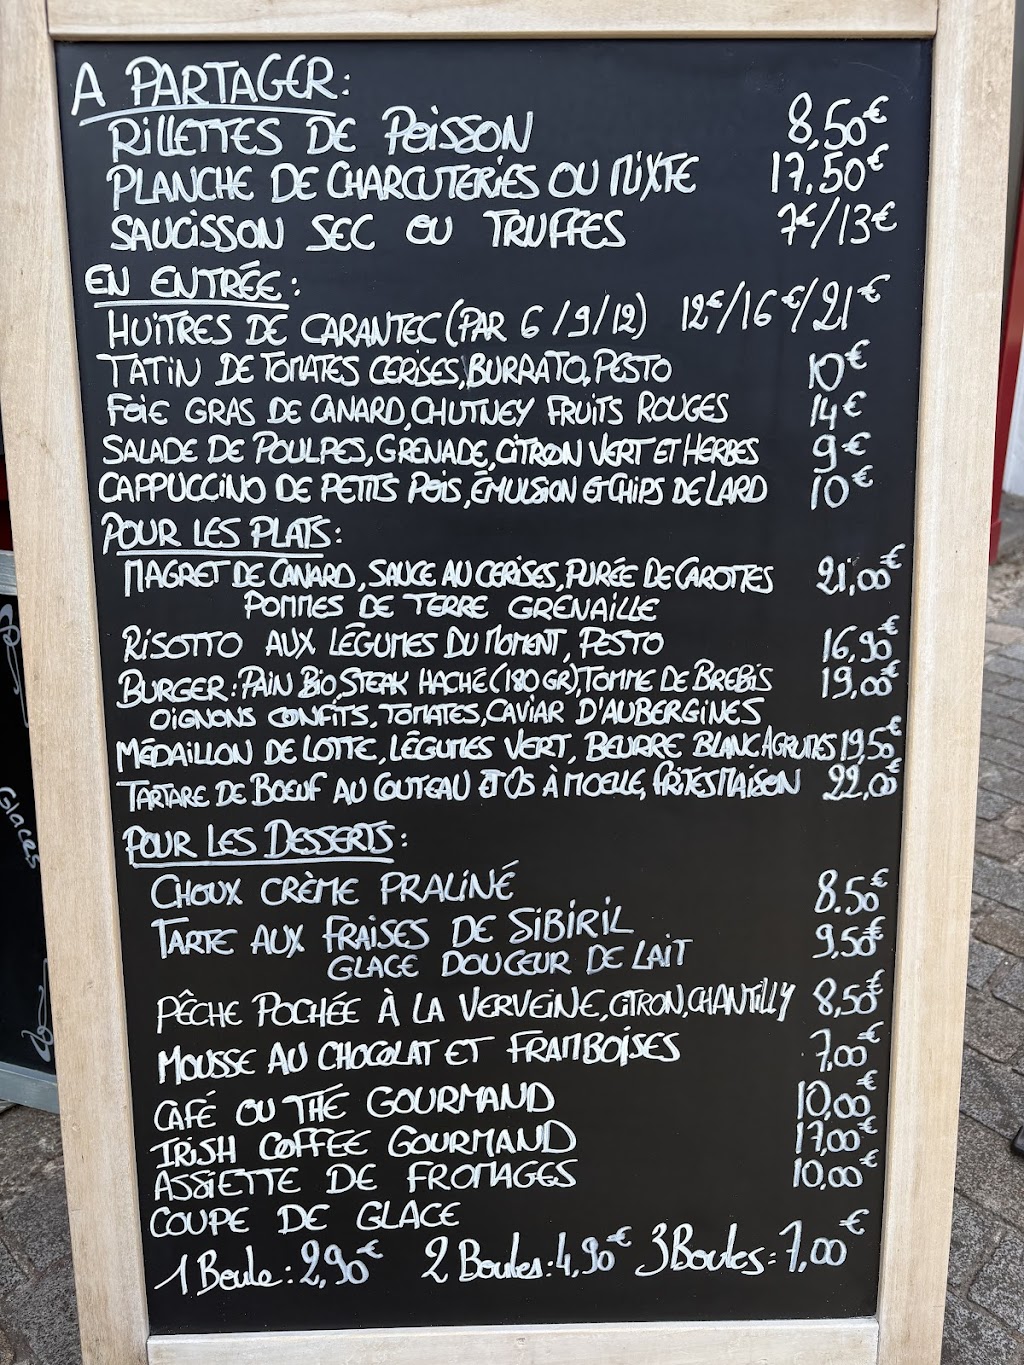 A PARTAGER:
RILLETTES DE POISSON 8,50€
PLANCHE DE CHARCUTERIES OU MIXTE 17,50€
SAUCISSON SEC OU TRUFFES 7€/13€
EN ENTRÉE:
HUITRES DE CARANTEC (PAR 6/9/12) 12€/16€/21€
TATIN DE TOMATES CERISES, BURRATO, PESTO 10€
FOIE GRAS DE CANARD, CHUTNEY FRUITS ROUGES 14€
SALADE DE POULPES, GRENADE, CITRON VERT ET HERBES 9€
CAPPUCCINO DE PETITS POIS, ÉMULSION ET CHIPS DE LARD 10€
POUR LES PLATS:
MAGRET DE CANARD, SAUCE AU CERISES, PURÉE DE CAROTTES 21,00€
POMMES DE TERRE GRENAILLE
RISOTTO AUX LÉGUMES DU MOMENT, PESTO 16,90€
BURGER: PAIN BIO, STEAK HACHÉ (180 GR), TOMME DE BREBIS 19,00€
OIGNONS CONFITS, TOMATES, CAVIAR D'AUBERGINES
MÉDAILLON DE LOTTE, LÉGUMES VERT, BEURRE BLANC AGRUMES 19,50€
TARTARE DE BOEUF AU COUTEAU ET OS À MOELLE, FRITES MAISON 22,00€
POUR LES DESSERTS:
CHOUX CRÈME PRALINÉ 8.50€
TARTE AUX FRAISES DE SIBIRIL 9,50€
GLACE DOUCEUR DE LAIT
PÊCHE POCHÉE À LA VERVEINE, CITRON, CHANTILLY 8,50€
MOUSSE AU CHOCOLAT ET FRAMBOISES 7,00€
CAFÉ OU THÉ GOURMAND 10,00€
IRISH COFFEE GOURMAND 17,00€
ASSIETTE DE FROMAGES 10,00€
COUPE DE GLACE
1 Boule: 2,90€ 2 Boules: 4,90€ 3 Boules: 7,00€
Glaces